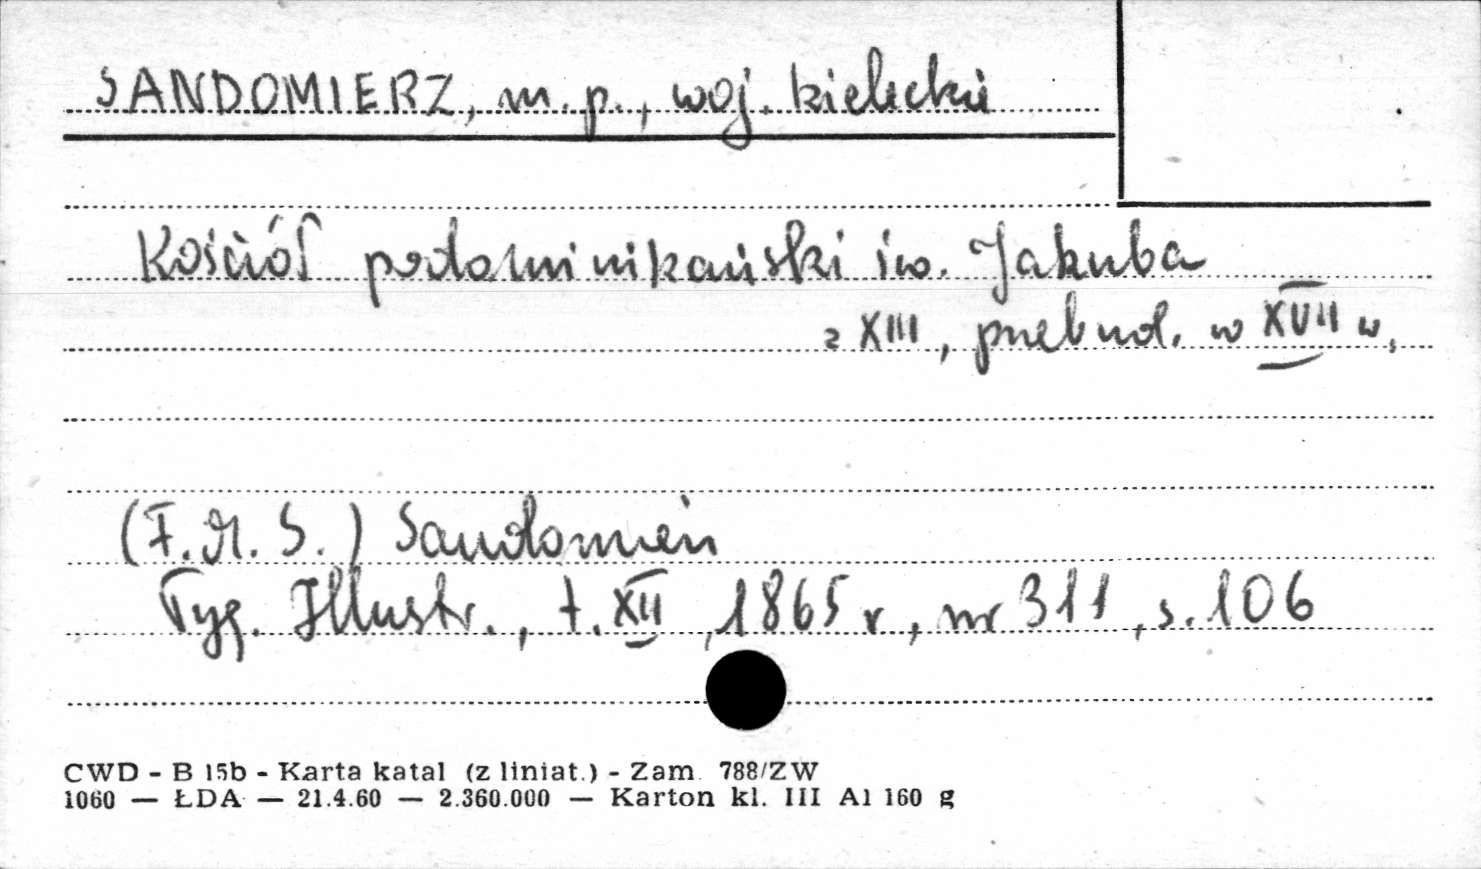 SANDOMIERZ, m. p., woj. kieleckie
Kościół podominikański św. Jakuba
z XIII, przebud. w XVII w.
(F. M. S.) Sandomierz
Tyg. Illustr., t. XII, 1865 r, nr 311, s. 106
CWD - B 15b - Karta katal (z liniat.) - Zam. 788/ZW
1060 — ŁDA — 21.4.60 — 2.360.000 — Karton kl. III A1 160 g